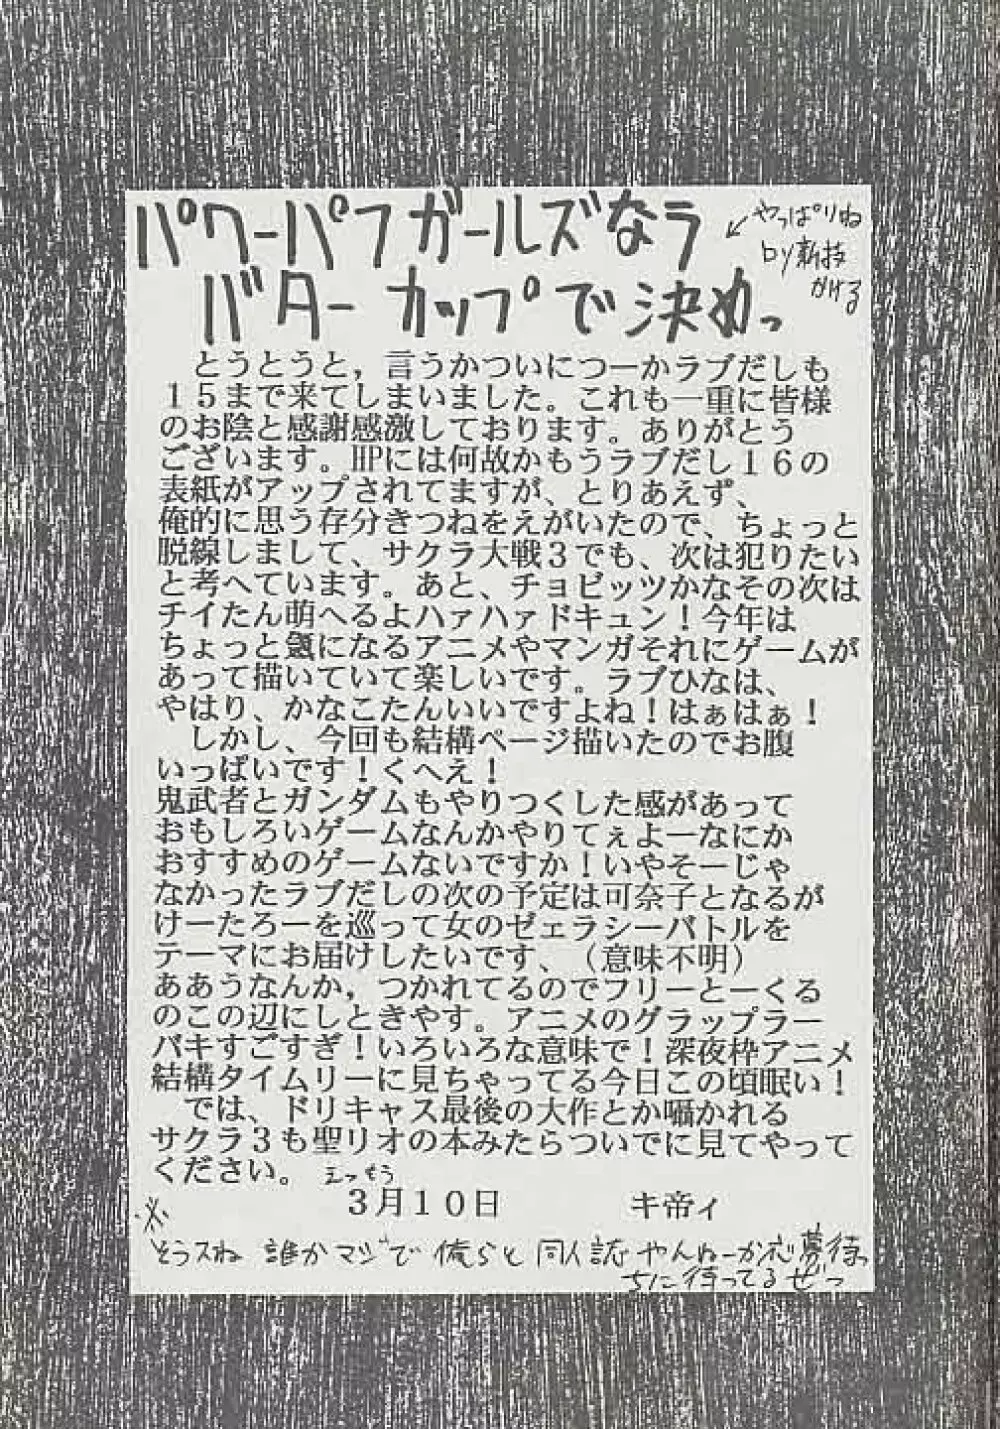 パワーパフガールズなラ
バターカップで決めっ
←やっぱりね
新技
かける
とうとうと，言うかついにつーかラブだしも
１５まで来てしまいました。これも一重に皆様
のお陰と感謝感激しております。ありがとう
ございます。HPには何故かもうラブだし１６の
表紙がアップされてますが、とりあえず、
俺的に思う存分きつねをえがいたので、ちょっと
脱線しまして、サクラ大戦３でも、次は犯りたい
と考へています。あと、チョビッツかなその次は
チイたん萌へるよハァハァドキュン！今年は
ちょっと氣になるアニメやマンガそれにゲームが
あって描いていて楽しいです。ラブひなは、
やはり、かなこたんいいですよね！はぁはぁ！
しかし、今回も結構ページ描いたのでお腹
いっぱいです！くへえ！
鬼武者とガンダムもやりつくした感があって
おもしろいゲームなんかやりてぇよーなにか
おすすめのゲームないですか！いやそーじゃ
なかったラブだしの次の予定は可奈子となるが
けーたろーを巡って女のゼェラシーバトルを
テーマにお届けしたいです、（意味不明）
ああうなんか，つかれてるのでフリーとーくる
のこの辺にしときやす。アニメのグラップラー
バキすごすぎ！いろいろな意味で！深夜枠アニメ
結構タイムリーに見ちゃってる今日この頃眠い！
では、ドリキャス最後の大作とか囁かれる
サクラ３も聖リオの本みたらついでに見てやって
ください。 えっもう
３月１０日 キ帝ィ
※
そうスね 誰かマジで俺らと同人誌やんねーか応募待っ
ちに待ってるぜっ